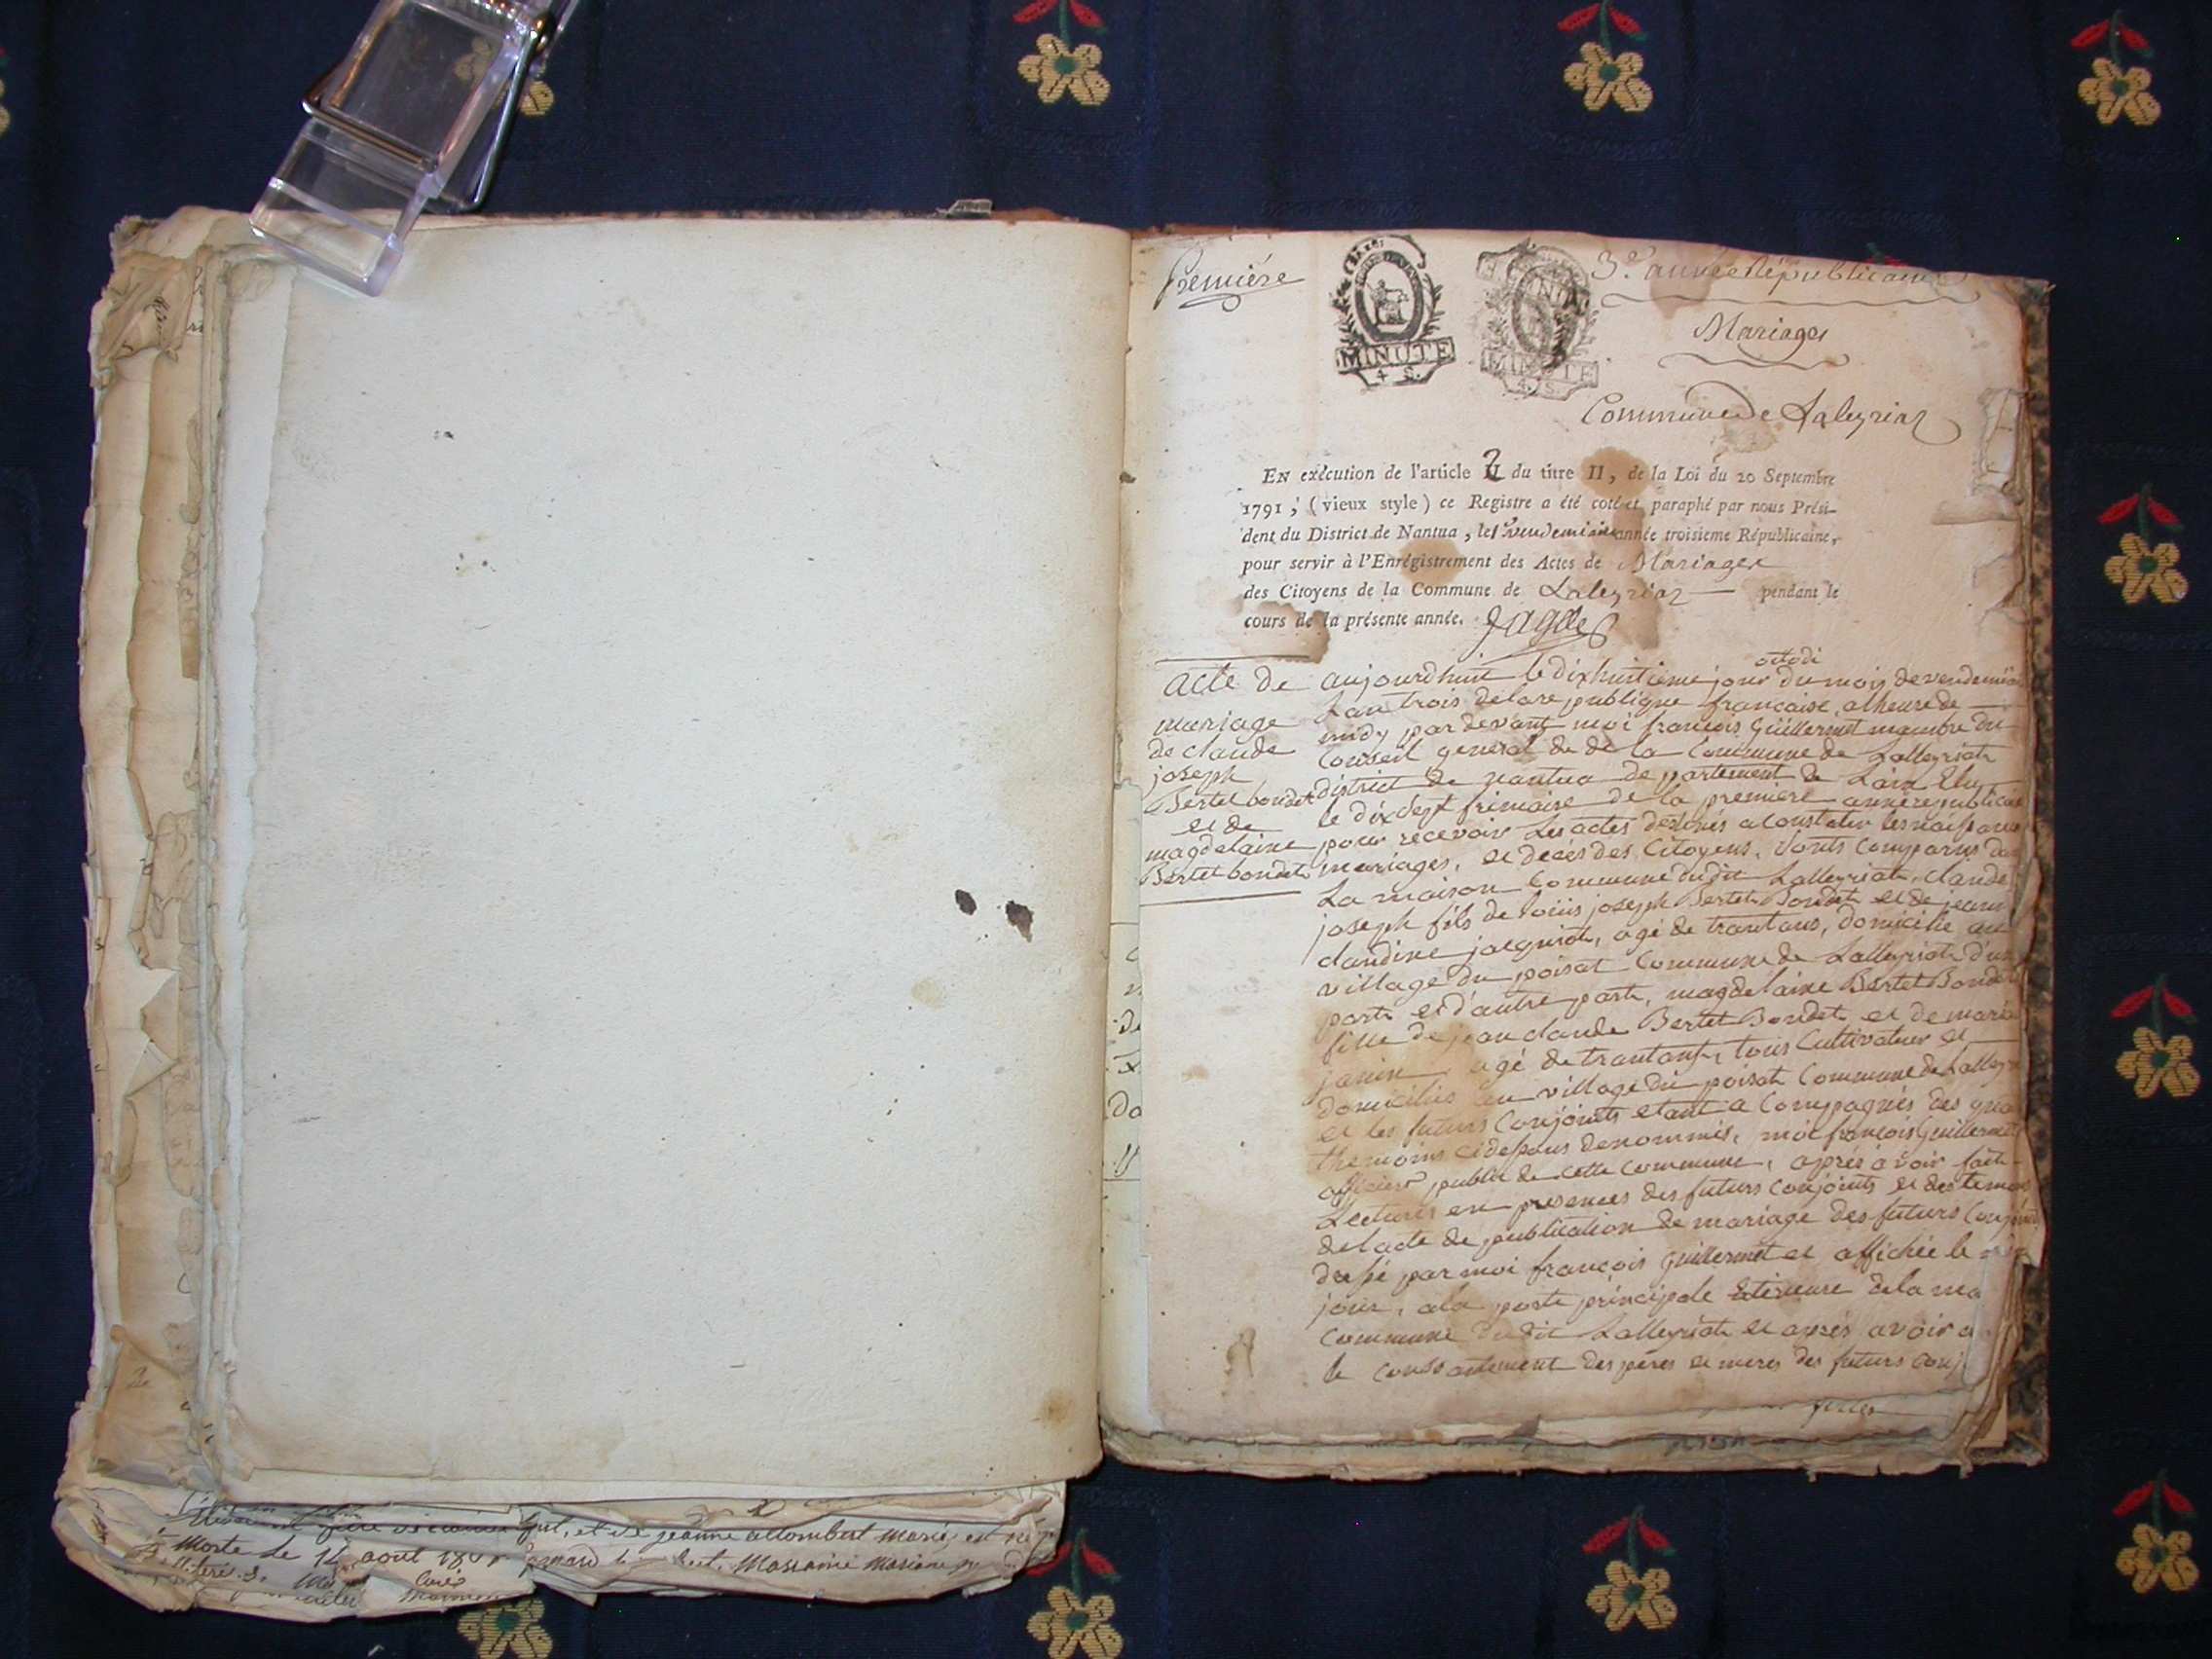 Premiére
MINUTE
4 S.
MINUTE
4 S.
3e. année Républicaine
Mariages
Commune de Laleyriaz
EN exécution de l'article 2 du titre II, de la Loi du 20 Septembre
1791, (vieux style) ce Registre a été coté et paraphé par nous Prési-
dent du District de Nantua, le 1er vendemiaire année troisieme Républicaine,
pour servir à l'Enrégistrement des Actes de Mariages
des Citoyens de la Commune de Laleyriaz pendant le
cours de la présente année.
acte de
mariage
de claude
joseph
Bertet bondet
et de
magdelaine
Bertet bondet
octodi
aujourdhuit le dixhuitieme jour du mois de vendemiai
Lan trois delare publique francaise, alheure de
midy par devant moi francois Guillermet mambre du
Conseil general de de la Commune de Lalleyriat
district de nantua de partement de Lain Elu
le dix sept frimaire de la premiere année republicai
pour recevoir les actes destinés a Constater les naissance
mariages, et decés des Citoyens, Sonts Comparus da
La maison Commune du dit Lalleyriat, claude
joseph fils de loüis joseph Bertet Bondet et de jean
claudine jacquiot, agé de trantans, domicilié au
village du poisat Commune de Lalleyriat d'une
parts et d'autre parts, magdelaine Bertet Bondet
fille de jean claude Bertet Bondet et de marie
janin, agé de trantans, tous Cultivateur et
domiciliés au village du poisat Commune de Lalleyr
et les futurs Conjoints etant a Compagnés des qua
themoins cidessous denommés, moi francois Guillermet
officier public de cette Commune, aprés avoir fait
Lectures en presences des futurs conjoints et des temoi
delacte de publication de mariage des futurs Conjoin
dressé par moi francois Guillermet et affichée le
jour, ala porte principale Exterieure dela ma
Commune du dit Lalleyriat et aprés avoir a
le consantement des péres et meres des futurs Conj
filles
et de jeanne allombert marié est
Morte le 14 août